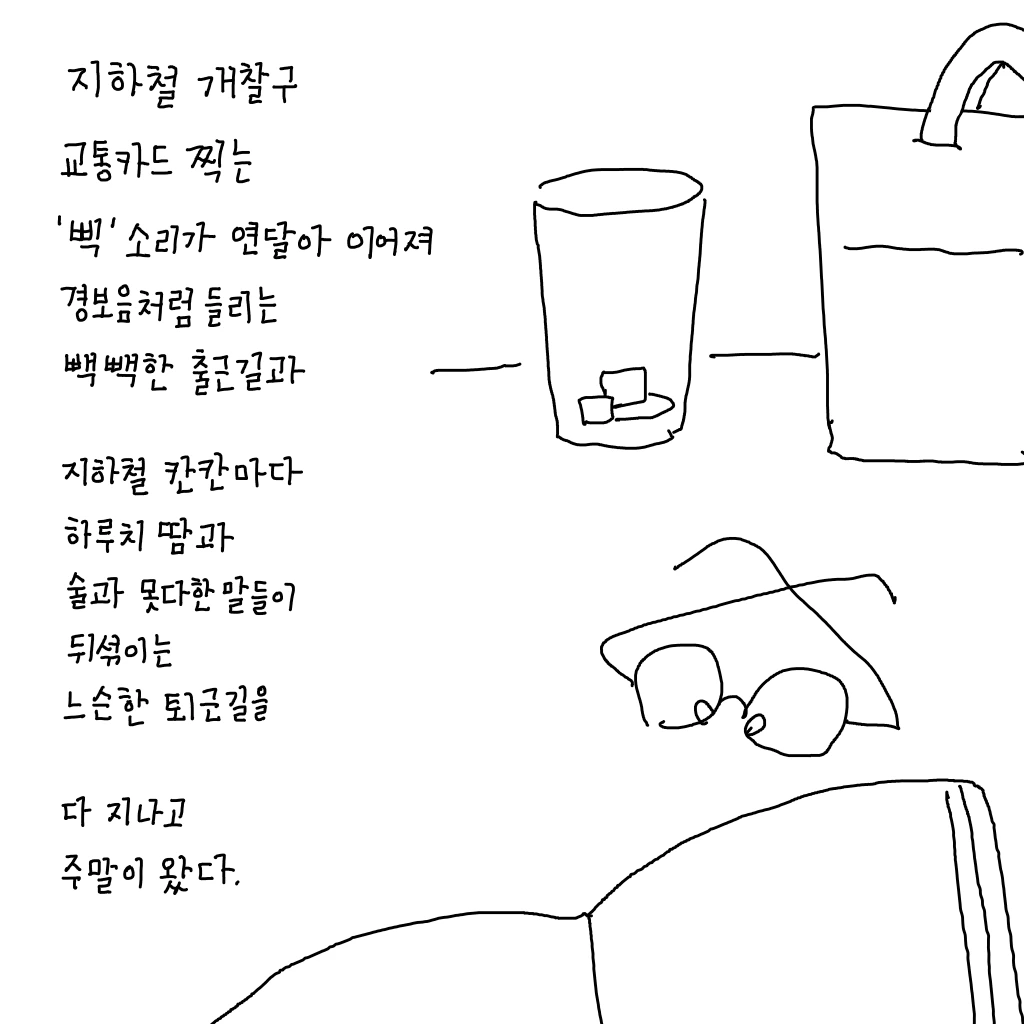 지하철 개찰구
교통카드 찍는
'삑' 소리가 연달아 이어져
경보음처럼 들리는
빽빽한 출근길과
지하철 칸칸마다
하루치 땀과
술과 못다한 말들이
뒤섞이는
느슨한 퇴근길을
다 지나고
주말이 왔다.